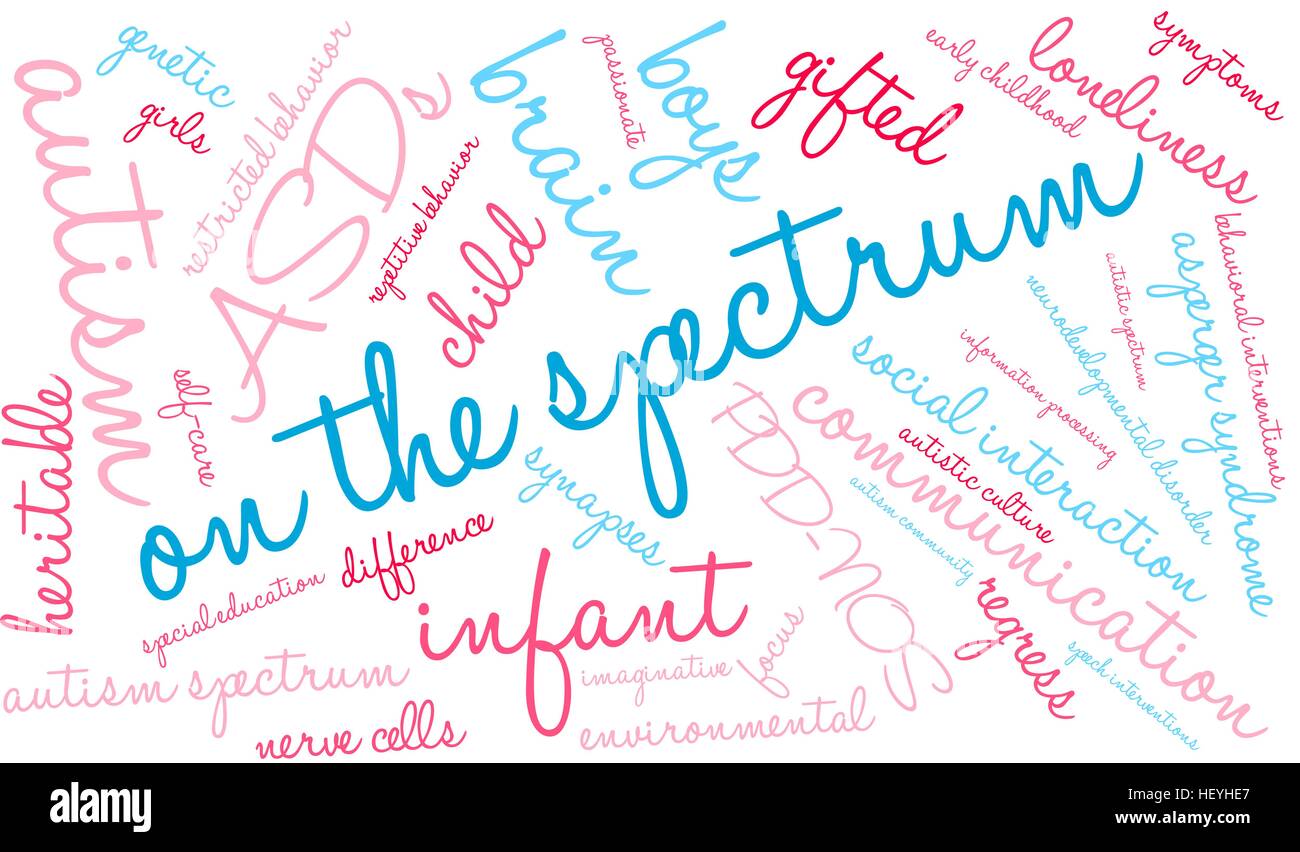 genetic
girls
autism
restricted behavior
ASDs
repetitive behavior
brain
passionate
boys
gifted
early childhood
loneliness
symptoms
child
on the spectrum
heritable
self-care
synapses
PDD-NOS
social interaction
communication
information processing
neurodevelopmental disorder
autistic spectrum
asperger syndrome
behavioral interventions
autistic culture
autism community
difference
special education
infant
imaginative
focus
regress
speech interventions
autism spectrum
nerve cells
environmental
a alamy stock photo
alamy
HEYHE7
www.alamy.com